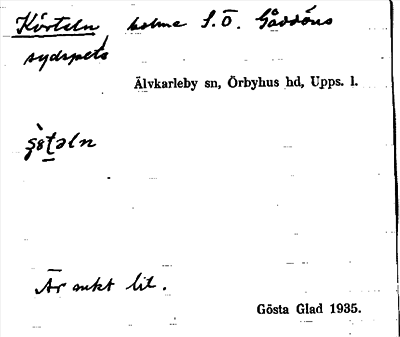 Körteln, holme S.Ö. Gåsööns
sydspets
Älvkarleby sn, Örbyhus hd, Upps. l.
Är mkt lit.
Gösta Glad 1935.